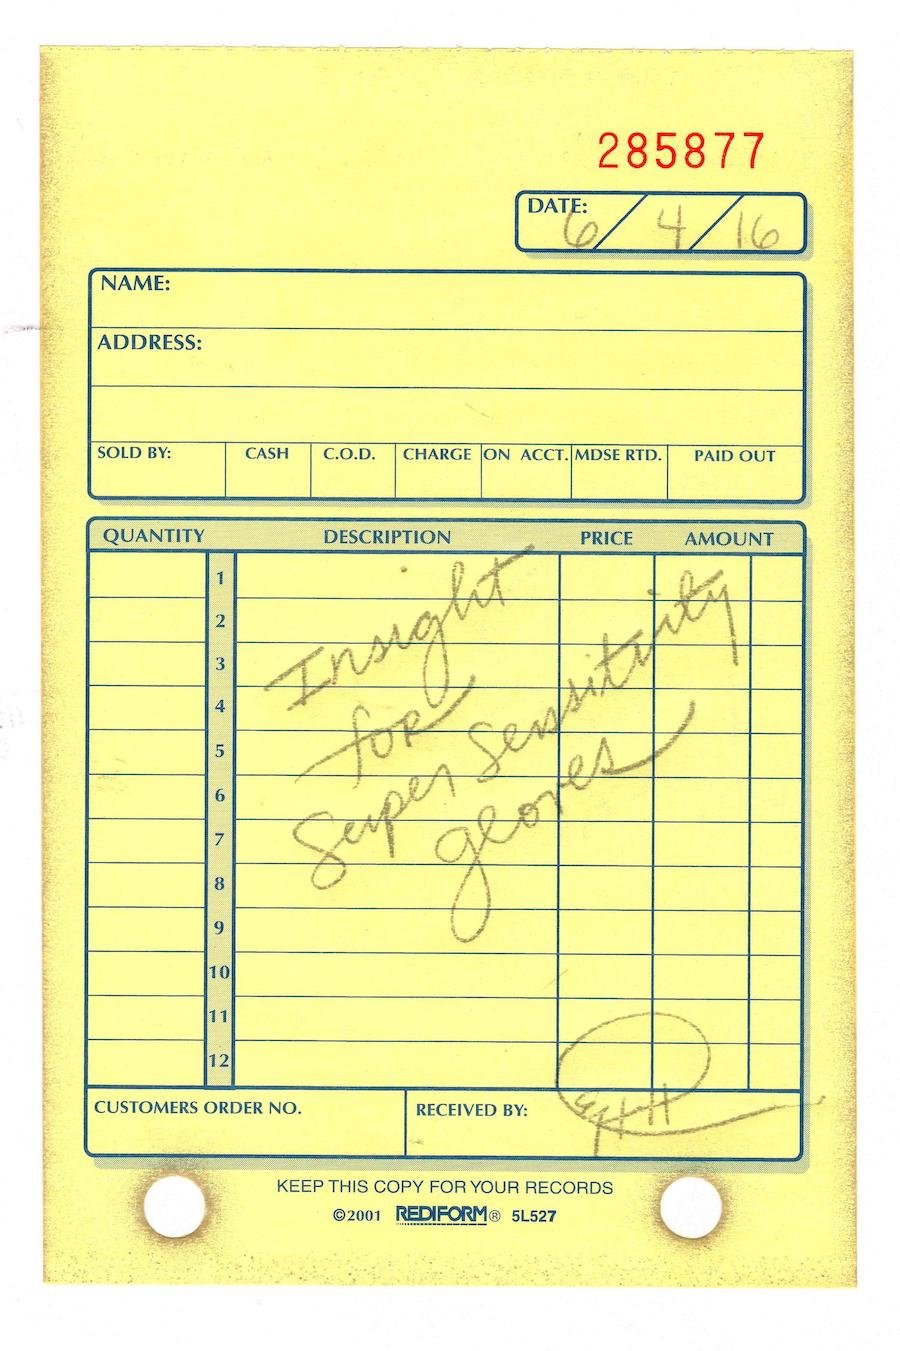 285877
DATE: 6/4/16
NAME:
ADDRESS:
SOLD BY: CASH C.O.D. CHARGE ON ACCT. MDSE RTD. PAID OUT
QUANTITY DESCRIPTION PRICE AMOUNT
1
2
3
4
5
6
7
8
9
10
11
12
Insight
for
Super Sensitivity
gloves
CUSTOMERS ORDER NO. RECEIVED BY:
KEEP THIS COPY FOR YOUR RECORDS
©2001 REDIFORM® 5L527